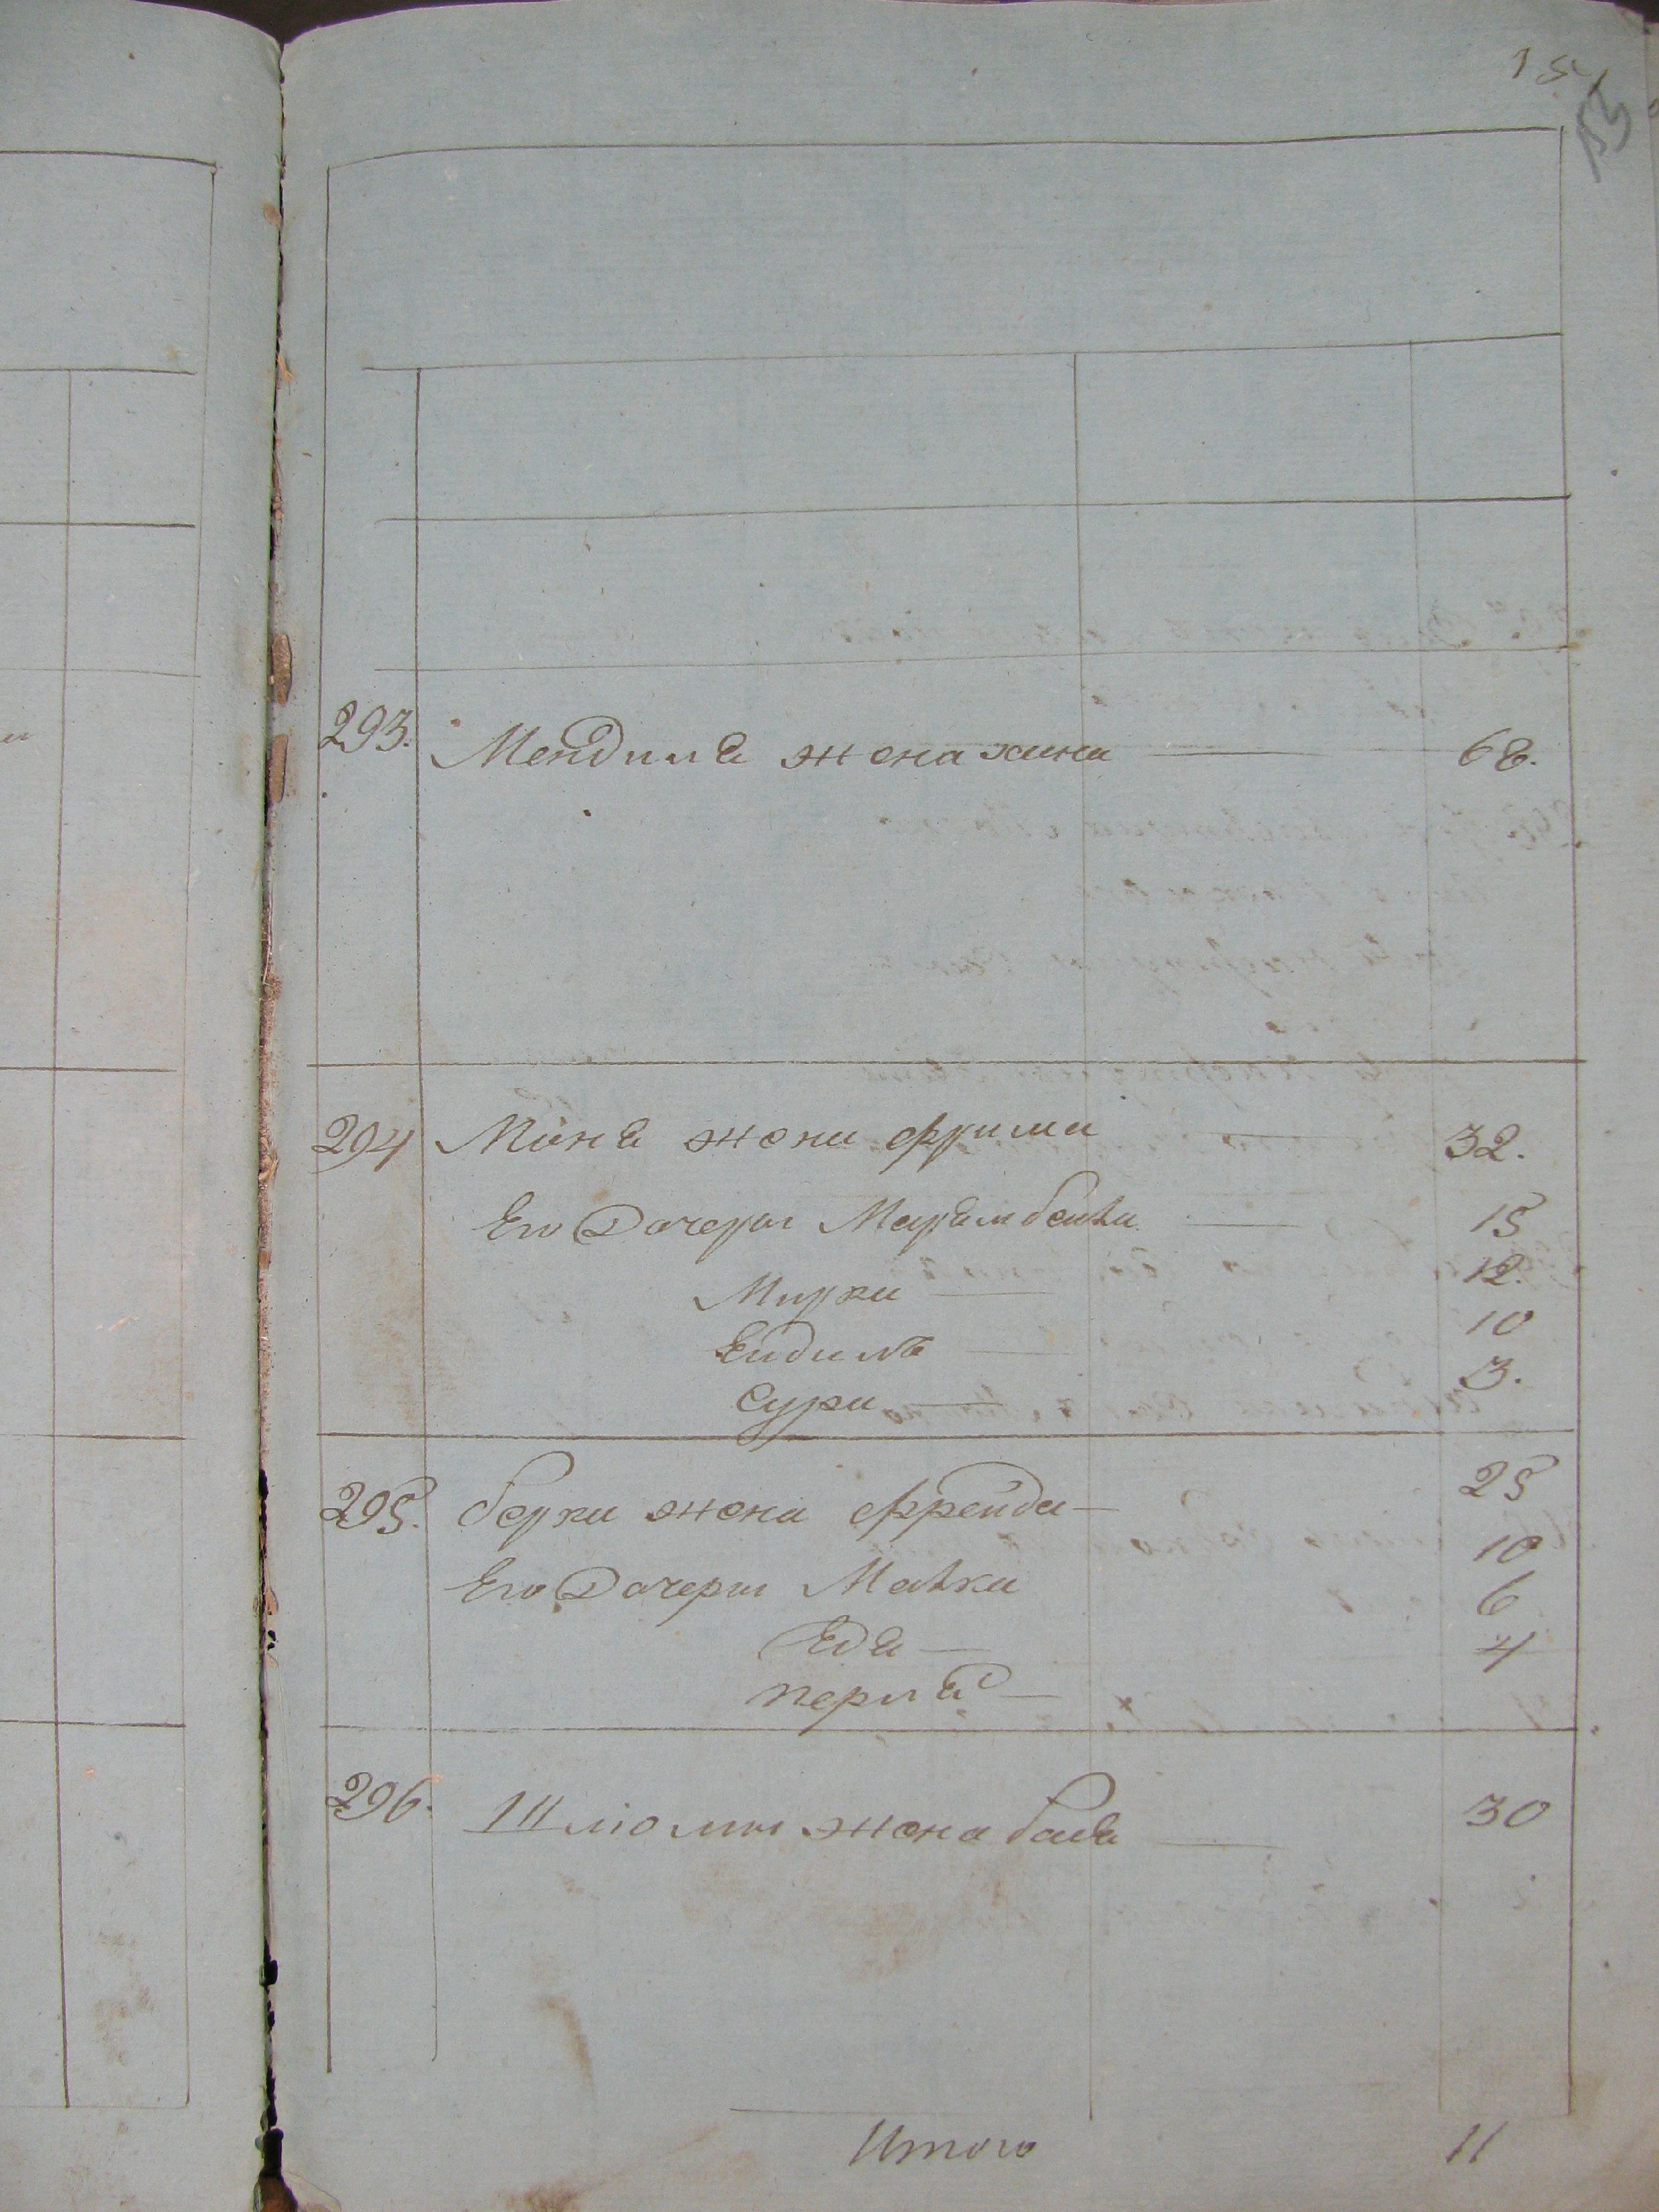 154
153
293. Мендиля жена хана 68.
294 Маня жена фрима 32.
Его Дочери Марямбейла 15
Мирка 12.
Ейдиль 10
Сура 3.
295. берка жена Фрейда 25
Его Дочери Малка 10
Едя 6
перля 4
296. Шлиомы жена бася 30
Итого 11